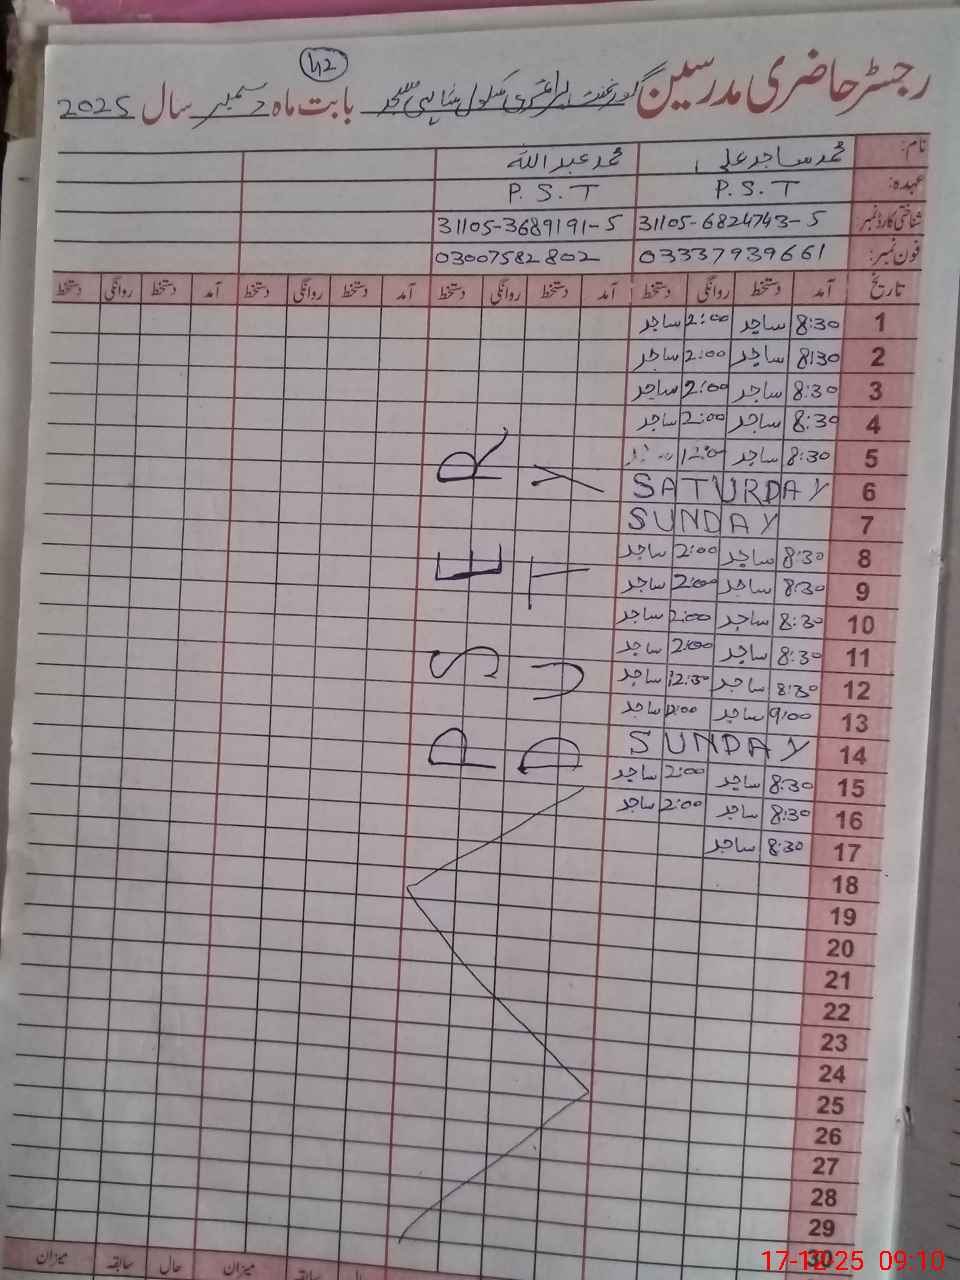 42
رجسٹر حاضری مدرسین گورنمنٹ پرائمری سکول شاہی مسجد بابت ماہ دسمبر سال 2025
نام: محمد ساجد علی محمد عبد اللہ
عہدہ: P.S.T P.S.T
شناختی کارڈ نمبر 31105-6824743-5 31105-3689191-5
فون نمبر: 03337939661 03007582802
تاریخ آمد دستخط روانگی دستخط آمد دستخط روانگی دستخط آمد دستخط روانگی دستخط آمد دستخط روانگی دستخط
1 8:30 ساجد 2:00 ساجد
2 8:30 ساجد 2:00 ساجد
3 8:30 ساجد 2:00 ساجد
4 8:30 ساجد 2:00 ساجد
5 8:30 ساجد
6 SATURDAY
7 SUNDAY
8 8:30 ساجد 2:00 ساجد
9 8:30 ساجد 2:00 ساجد
10 8:30 ساجد 2:00 ساجد
11 8:30 ساجد 2:00 ساجد
12 8:30 ساجد 12:30 ساجد
13 9:00 ساجد ساجد
14 SUNDAY
15 8:30 ساجد 2:00 ساجد
16 8:30 ساجد 2:00 ساجد
17 8:30 ساجد
18
19
20
21
22
23
24
25
26
27
28
29
30
DUTY
REST
میزان سابقہ حال میزان سابقہ
17-12-25 09:10